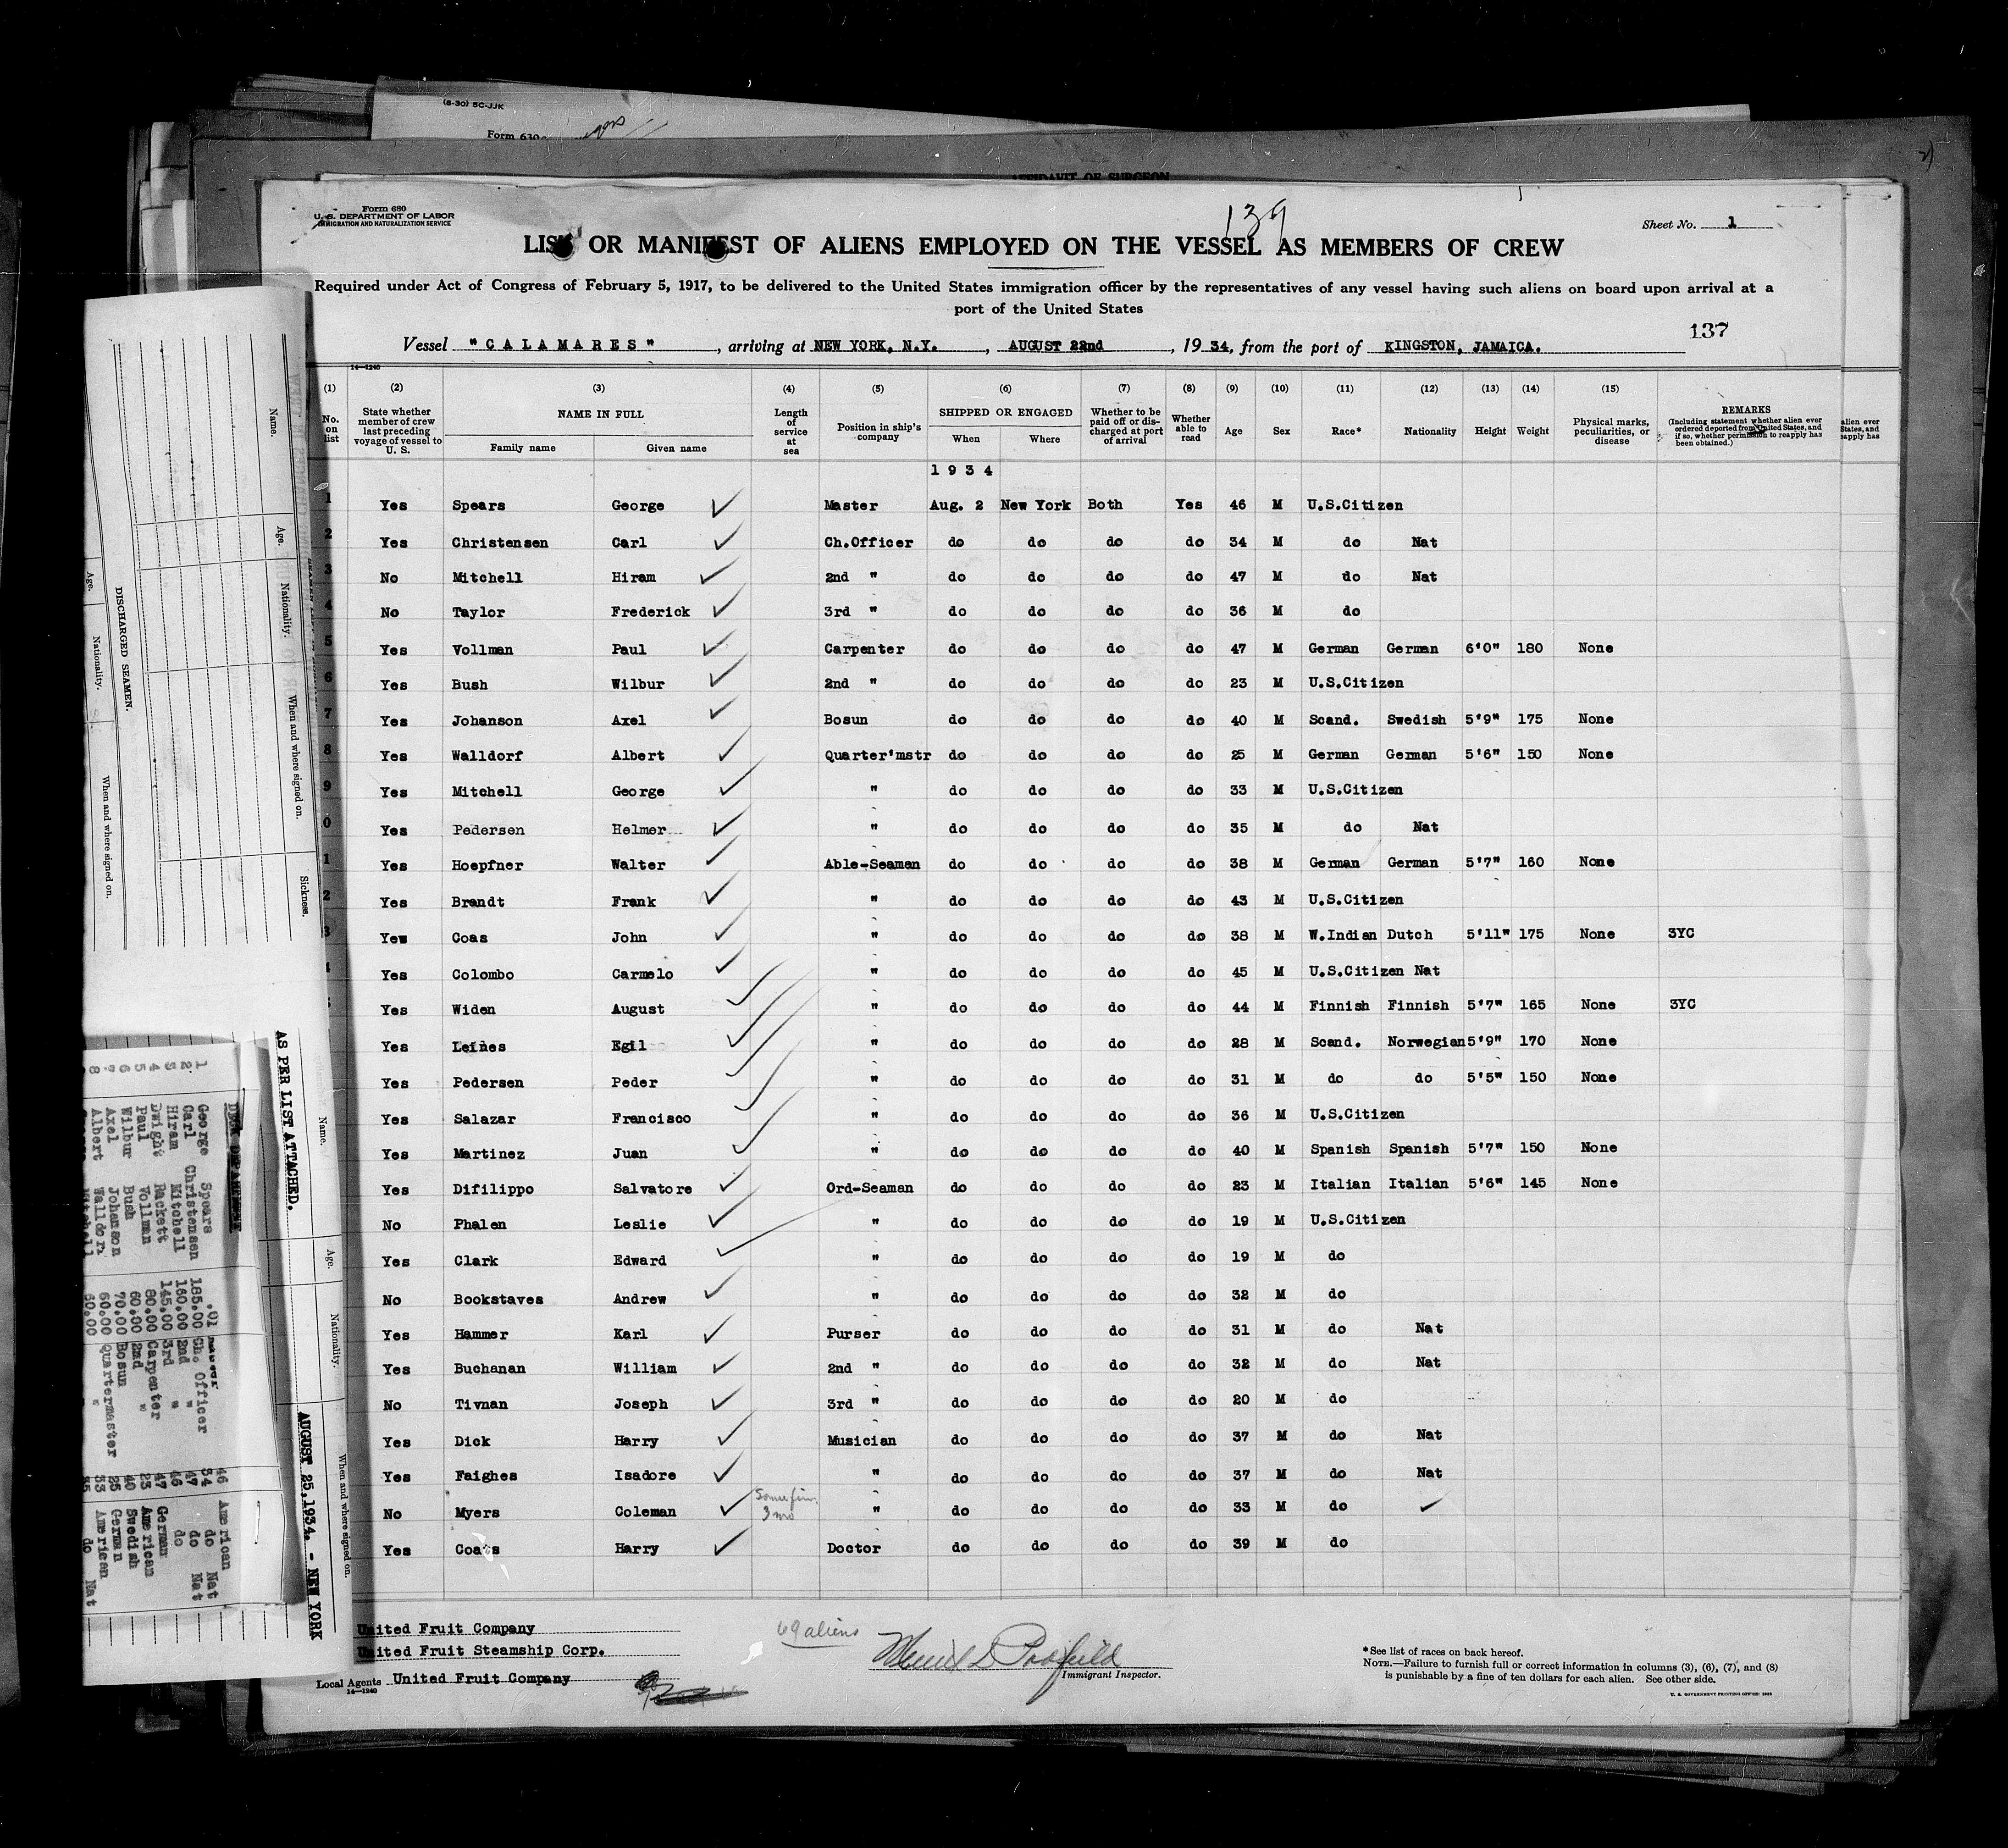 (8-30) 5C-JJK
Form 630
AFFIDAVIT OF SURGEON
Form 680
U. S. DEPARTMENT OF LABOR
IMMIGRATION AND NATURALIZATION SERVICE
139
Sheet No. 1
LIST OR MANIFEST OF ALIENS EMPLOYED ON THE VESSEL AS MEMBERS OF CREW
Required under Act of Congress of February 5, 1917, to be delivered to the United States immigration officer by the representatives of any vessel having such aliens on board upon arrival at a
port of the United States
137
Vessel "CALAMARES", arriving at NEW YORK, N.Y., AUGUST 22nd, 19 34, from the port of KINGSTON, JAMAICA.
14—1240
(1) (2) (3) (4) (5) (6) (7) (8) (9) (10) (11) (12) (13) (14) (15)
No. on list State whether member of crew last preceding voyage of vessel to U. S. NAME IN FULL Family name Given name Length of service at sea Position in ship's company SHIPPED OR ENGAGED When Where Whether to be paid off or discharged at port of arrival Whether able to read Age Sex Race* Nationality Height Weight Physical marks, peculiarities, or disease REMARKS (Including statement whether alien ever ordered deported from United States, and if so, whether permission to reapply has been obtained.)
alien ever
States, and
eapply has
1 9 3 4
1 Yes Spears George Master Aug. 2 New York Both Yes 46 M U.S.Citizen
2 Yes Christensen Carl Ch.Officer do do do do 34 M do Nat
3 No Mitchell Hiram 2nd " do do do do 47 M do Nat
4 No Taylor Frederick 3rd " do do do do 36 M do
5 Yes Vollman Paul Carpenter do do do do 47 M German German 6'0" 180 None
6 Yes Bush Wilbur 2nd " do do do do 23 M U.S.Citizen
7 Yes Johanson Axel Bosun do do do do 40 M Scand. Swedish 5'9" 175 None
8 Yes Walldorf Albert Quarter'mstr do do do do 25 M German German 5'6" 150 None
9 Yes Mitchell George " do do do do 33 M U.S.Citizen
0 Yes Pedersen Helmer " do do do do 35 M do Nat
1 Yes Hoepfner Walter Able-Seaman do do do do 38 M German German 5'7" 160 None
2 Yes Brandt Frank " do do do do 43 M U.S.Citizen
3 Yew Coas John " do do do do 38 M W.Indian Dutch 5'11" 175 None 3YC
Yes Colombo Carmelo " do do do do 45 M U.S.Citizen Nat
Yes Widen August " do do do do 44 M Finnish Finnish 5'7" 165 None 3YC
Yes Leines Egil " do do do do 28 M Scand. Norwegian 5'9" 170 None
Yes Pedersen Peder " do do do do 31 M do do 5'5" 150 None
Yes Salazar Francisco " do do do do 36 M U.S.Citizen
Yes Martinez Juan " do do do do 40 M Spanish Spanish 5'7" 150 None
Yes Difilippo Salvatore Ord-Seaman do do do do 23 M Italian Italian 5'6" 145 None
No Phalen Leslie " do do do do 19 M U.S.Citizen
Yes Clark Edward " do do do do 19 M do
No Bookstaves Andrew " do do do do 32 M do
Yes Hammer Karl Purser do do do do 31 M do Nat
Yes Buchanan William 2nd " do do do do 32 M do Nat
No Tivnan Joseph 3rd " do do do do 20 M do
Yes Dick Harry Musician do do do do 37 M do Nat
Yes Faighes Isadore " do do do do 37 M do Nat
No Myers Coleman 3 mo " do do do do 33 M do
Yes Coats Harry Doctor do do do do 39 M do
United Fruit Company
United Fruit Steamship Corp.
Local Agents United Fruit Company
14—1240
69 aliens
Immigrant Inspector.
*See list of races on back hereof.
NOTE.—Failure to furnish full or correct information in columns (3), (6), (7), and (8)
is punishable by a fine of ten dollars for each alien. See other side.
Name. Age. Nationality. When and where signed on. Sickness.
DISCHARGED SEAMEN.
Age. Nationality. When and where signed on.
Name. Age. Nationality. When and where signed on.
AS PER LIST ATTACHED. AUGUST 25,1934. - NEW YORK
DECK DEPARTMENT
1 George Spears .01 46 American
2 Carl Christensen 185.00 Ch. Officer 34 do Nat
3 Hiram Mitchell 160.00 2nd " 47 do Nat
4 Dwight Rackett 145.00 3rd " 46 do
5 Paul Vollman 80.00 Carpenter 47 German
6 Wilbur Bush 60.00 2nd " 23 American
7 Axel Johanson 70.00 Bosun 40 Swedish
8 Albert Walldorf 60.00 Quartermaster 25 German
Mitchell 60.00 " 33 American
35 do Nat